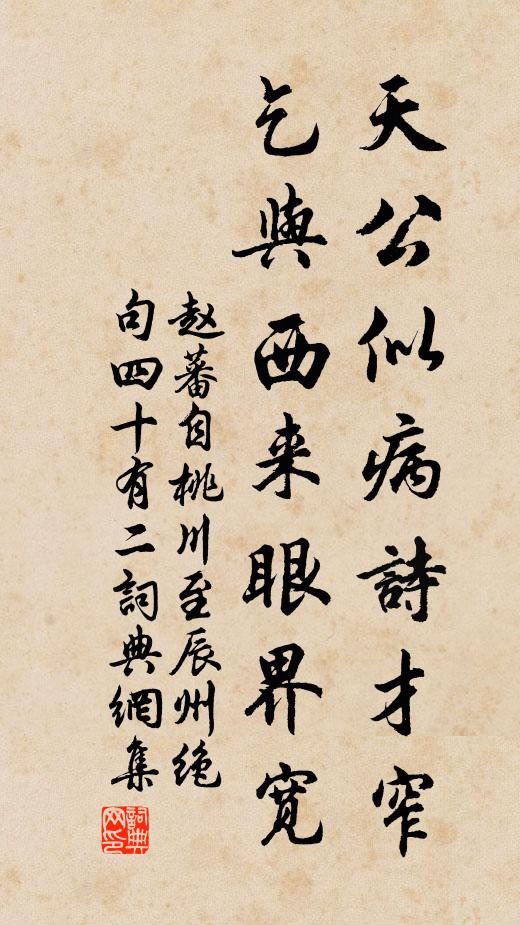 天公似病詩才窄
乞與西来眼界寬
赵蕃自桃川至辰州绝
句四十有二詞典網集
詞典
网印